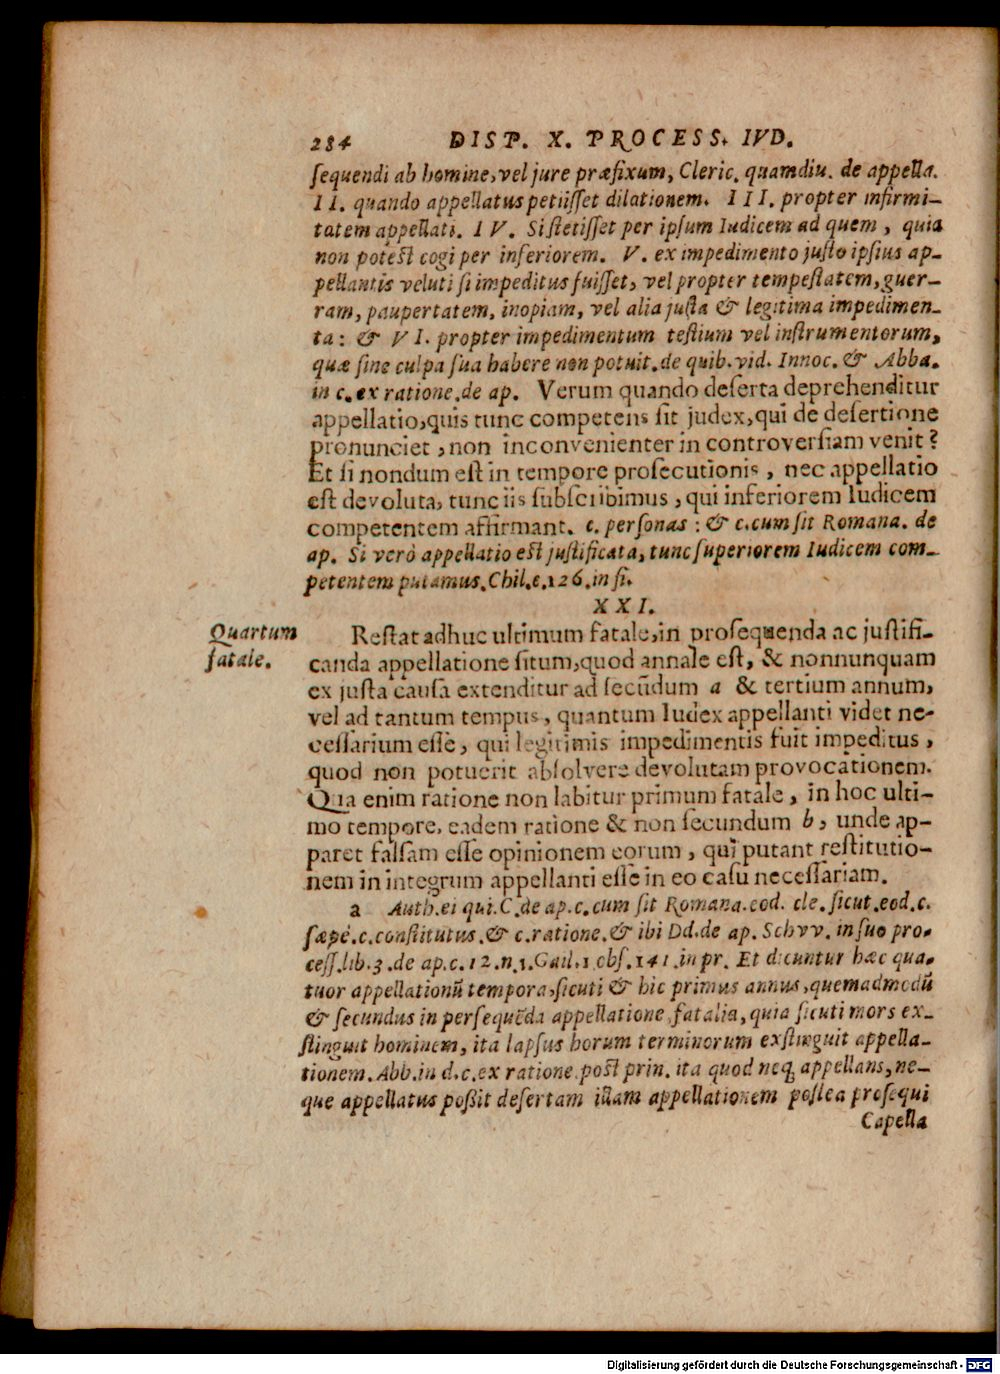 284 DISP. X. PROCESS. IVD.
ſequendi ab homine, vel jure præfixum, Cleric. quamdiu. de appella.
II. quando appellatus petiiſſet dilationem. III. propter infirmi-
tatem appellati. IV. Si ſtetiſſet per ipſum Iudicem ad quem, quia
non poteſt cogi per inferiorem. V. ex impedimento juſto ipſius ap-
pellantis veluti ſi impeditus fuiſſet, vel propter tempeſtatem, guer-
ram, paupertatem, inopiam, vel alia juſta & legitima impedimen-
ta: & VI. propter impedimentum teſtium vel inſtrumentorum,
quæ ſine culpa ſua habere non potuit. de quib. vid. Innoc. & Abba.
in c. ex ratione. de ap. Verum quando deſerta deprehenditur
appellatio, quis tunc competens ſit judex, qui de deſertione
pronunciet, non inconvenienter in controverſiam venit?
Et ſi nondum eſt in tempore proſecutionis, nec appellatio
eſt devoluta, tunc iis ſubſcribimus, qui inferiorem Iudicem
competentem affirmant. c. perſonas: & c. cum ſit Romana. de
ap. Si verò appellatio eſt juſtificata, tunc ſuperiorem Iudicem com-
petentem putamus. Chil. c. 126. in fi.
XXI.
Quartum
fatale.
Reſtat adhuc ultimum fatale, in proſequenda ac juſtifi-
canda appellatione ſitum, quod annale eſt, & nonnunquam
ex juſta cauſa extenditur ad ſecūdum a & tertium annum,
vel ad tantum tempus, quantum Iudex appellanti videt ne-
ceſſarium eſſe, qui legitimis impedimentis fuit impeditus,
quod non potuerit abſolvere devolutam provocationem.
Qua enim ratione non labitur primum fatale, in hoc ulti-
mo tempore, eadem ratione & non ſecundum b, unde ap-
paret falſam eſſe opinionem eorum, qui putant reſtitutio-
nem in integrum appellanti eſſe in eo caſu neceſſariam.
a Auth. ei qui. C. de ap. c. cum ſit Romana. eod. cle. ſicut. eod. c.
ſæpè. c. conſtitutus. & c. ratione. & ibi Dd. de ap. Schvv. in ſuo pro-
ceſſ. lib. 3. de ap. c. 12. n. 1. Gail. 1 obſ. 141. in pr. Et dicuntur hæc qua-
tuor appellationū tempora, ſicuti & hic primus annus, quemadmodū
& ſecundus in perſequēda appellatione, fatalia, quia ſicuti mors ex-
ſtinguit hominem, ita lapſus horum terminorum exſtinguit appella-
tionem. Abb. in d. c. ex ratione. poſt prin. ita quod neq́ appellans, ne-
que appellatus poßit deſertam illam appellationem poſtea proſequi
Capella
Digitalisierung gefördert durch die Deutsche Forschungsgemeinschaft - DFG